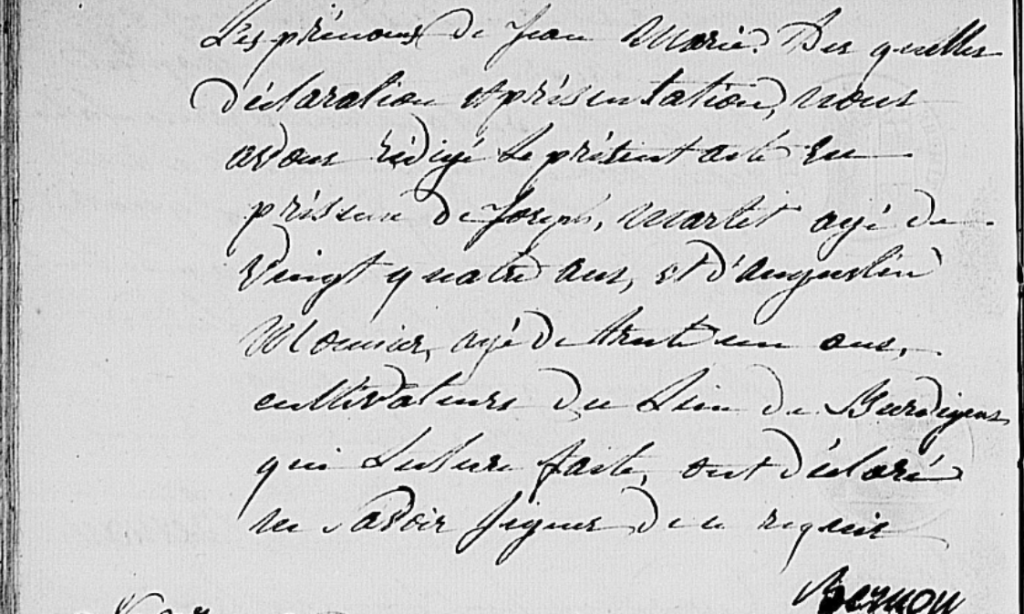 Les prénoms de Jean Marie. Des quelles
déclaration et présentation, nous
avons rédigé le présent acte en
présence de Joseph, Martet agé de
vingt quatre ans, et d'augustin
Mounier, agé de trente un ans,
cultivateurs du lieu de Burdignes
qui lecture faite, ont déclaré
ne savoir signer de ce requis
Bernou